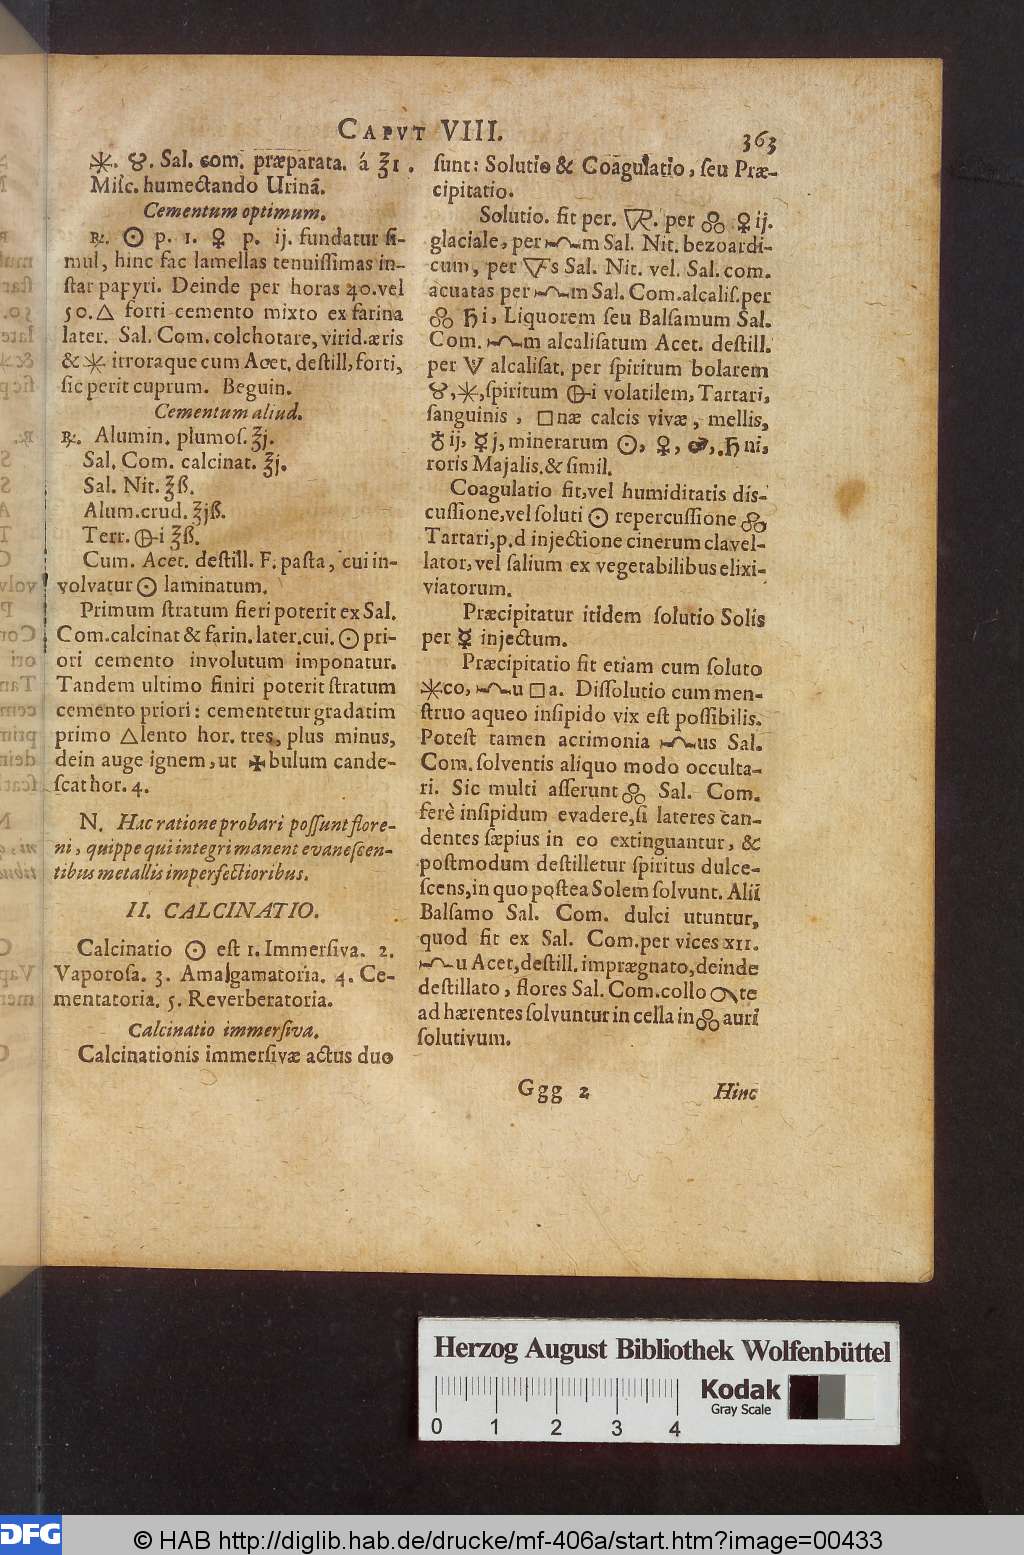 CAPVT VIII.
363
🞶. ♉. Sal. com. præparata. á ℥1.
Miſc. humectando Urinâ.
Cementum optimum.
℞. ☉ p. 1. ♀ p. ij. fundatur ſi-
mul, hinc fac lamellas tenuiſſimas in-
ſtar papyri. Deinde per horas 40. vel
50. △ forti cemento mixto ex farina
later. Sal. Com. colchotare, virid. æris
& 🞶 irroraque cum Acet. deſtill, forti,
ſic perit cuprum. Beguin.
Cementum aliud.
℞. Alumin. plumoſ. ℥j.
Sal. Com. calcinat. ℥j.
Sal. Nit. ℥ß.
Alum. crud. ℥jß.
Terr. i ℥ß.
Cum. Acet. deſtill. F. paſta, cui in-
volvatur ☉ laminatum.
Primum ſtratum fieri poterit ex Sal.
Com. calcinat & farin. later. cui. ☉ pri-
ori cemento involutum imponatur.
Tandem ultimo finiri poterit ſtratum
cemento priori: cementetur gradatim
primo △ lento hor. tres, plus minus,
dein auge ignem, ut ✠bulum cande-
ſcat hor. 4.
N. Hac ratione probari poſſunt flore-
ni, quippe qui integri manent evaneſcen-
tibus metallis imperfectioribus.
II. CALCINATIO.
Calcinatio ☉ eſt 1. Immerſiva. 2.
Vaporoſa. 3. Amalgamatoria. 4. Ce-
mentatoria. 5. Reverberatoria.
Calcinatio immerſiva.
Calcinationis immerſivæ actus duo
ſunt: Solutio & Coagulatio, ſeu Præ-
cipitatio.
Solutio. fit per. per ♀ ij.
glaciale, per m Sal. Nit. bezoardi-
cum, per s Sal. Nit. vel. Sal. com.
acuatas per m Sal. Com. alcaliſ. per
♄i, Liquorem ſeu Balſamum Sal.
Com. m alcaliſatum Acet. deſtill.
per alcaliſat. per ſpiritum bolarem
♉, 🞶, ſpiritum i volatilem, Tartari,
ſanguinis, □næ calcis vivæ, mellis,
♁ ij, ☿ j, minerarum ☉, ♀, ♂, ♄ ni,
roris Majalis. & ſimil.
Coagulatio fit, vel humiditatis diſ-
cuſſione, vel ſoluti ☉ repercuſſione
Tartari, p. d injectione cinerum clavel-
lator, vel ſalium ex vegetabilibus elixi-
viatorum.
Præcipitatur itidem ſolutio Solis
per ☿ injectum.
Præcipitatio fit etiam cum ſoluto
🞶co, u □a. Diſſolutio cum men-
ſtruo aqueo inſipido vix eſt poſſibilis.
Poteſt tamen acrimonia us Sal.
Com. ſolventis aliquo modo occulta-
ri. Sic multi aſſerunt Sal. Com.
ferè inſipidum evadere, ſi lateres can-
dentes ſæpius in eo extinguantur, &
poſtmodum deſtilletur ſpiritus dulce-
ſcens, in quo poſtea Solem ſolvunt. Alii
Balſamo Sal. Com. dulci utuntur,
quod fit ex Sal. Com. per vices XII.
u Acet, deſtill. imprægnato, deinde
deſtillato, flores Sal. Com. collo te
ad hærentes ſolvuntur in cella in auri
ſolutivum.
Ggg 2
Hinc
Herzog August Bibliothek Wolfenbüttel
Kodak
Gray Scale
0 1 2 3 4
DFG
© HAB http://diglib.hab.de/drucke/mf-406a/start.htm?image=00433